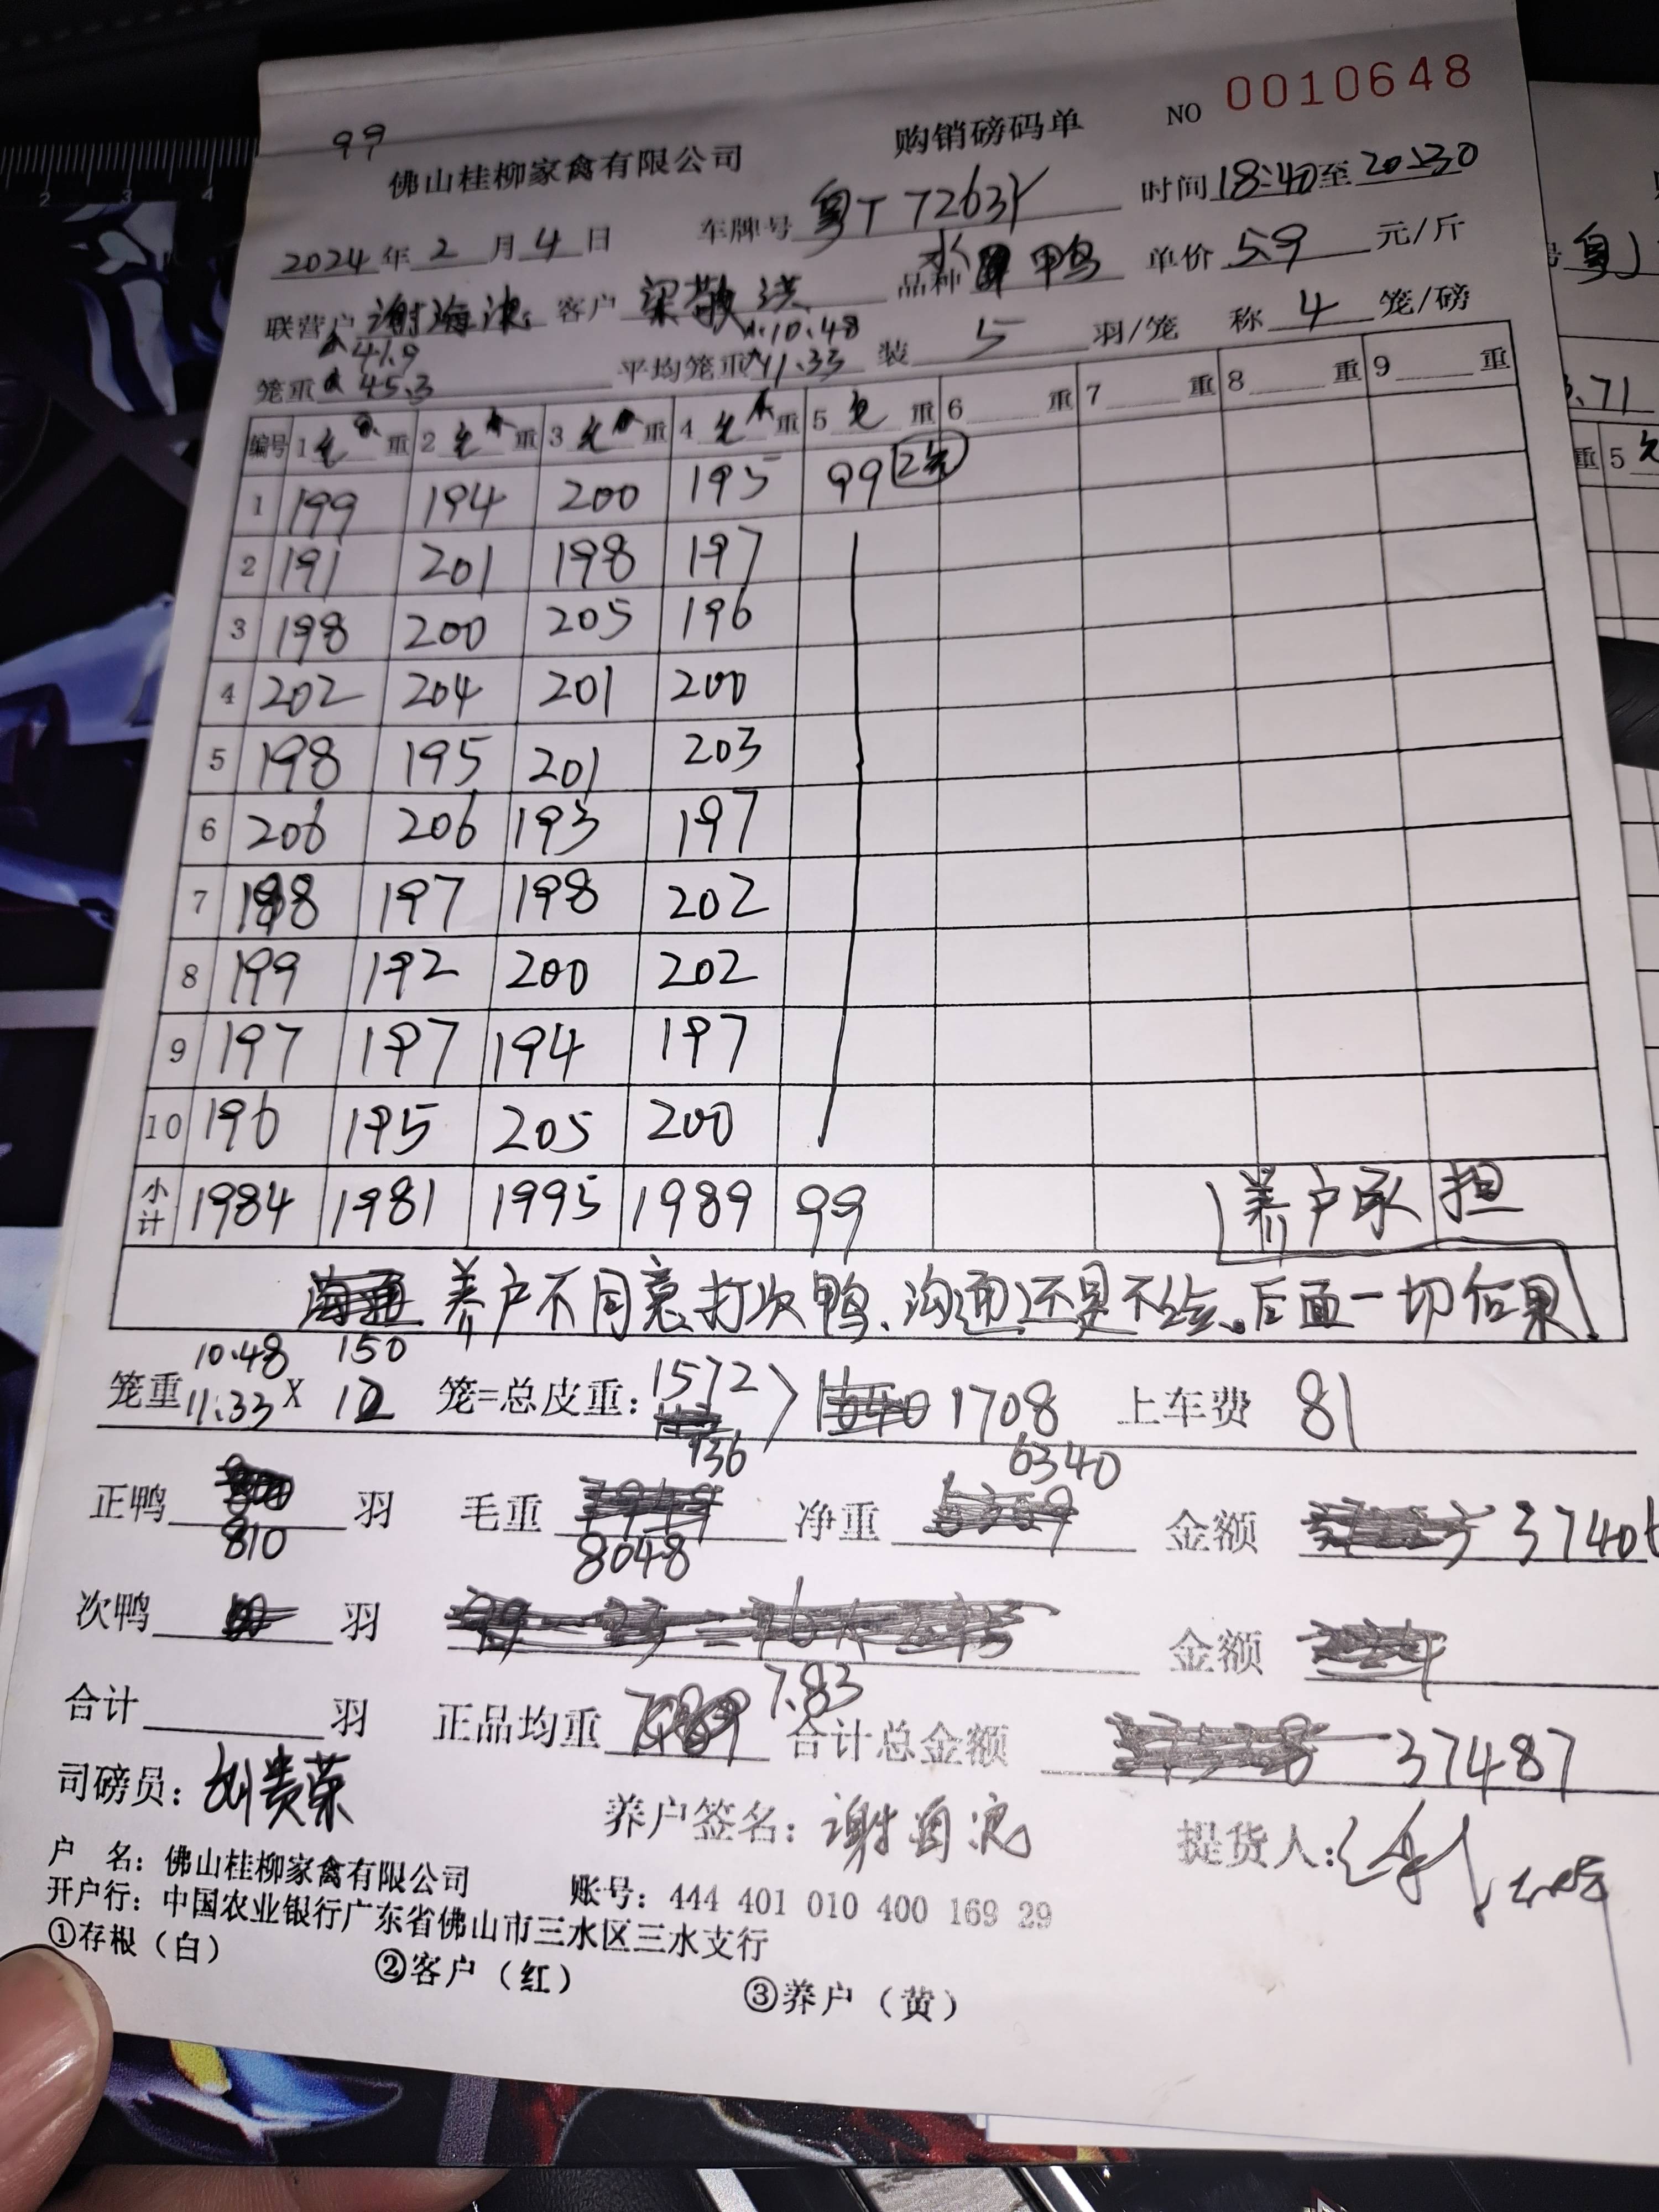 99
佛山桂柳家禽有限公司 购销磅码单 NO 0010648
2024年2月4日 车牌号 粤T7263Y 时间18:40至20:30
联营户 谢海 客户 梁敬洪 品种 水 鸭 单价 5.9 元/斤
41.9 10.48
笼重 45.3 平均笼重 11.33 装 5 羽/笼 称 4 笼/磅
编号 1 重 2 重 3 重 4 重 5 重 6 重 7 重 8 重 9 重
1 199 194 200 195 99
2 191 201 198 197
3 198 200 205 196
4 202 204 201 200
5 198 195 201 203
6 206 206 193 197
7 198 197 198 202
8 199 192 200 202
9 197 197 194 197
10 196 195 205 200
小计 1984 1981 1995 1989 99
养户承担
养户不同意打次鸭、沟通还是不给。后面一切后果
10.48 150 1572
笼重 11.33 X 12 笼=总皮重: 136 1708 上车费 81
正鸭 810 羽 毛重 8048 净重 6340 金额 37406
次鸭 羽 金额
合计 羽 正品均重 7.83 合计总金额 37487
司磅员: 刘贵荣 养户签名: 谢海 提货人:
户 名: 佛山桂柳家禽有限公司 账号: 444 401 010 400 169 29
开户行: 中国农业银行广东省佛山市三水区三水支行
①存根（白） ②客户（红） ③养户（黄）
2 3 4
3.71
重 5